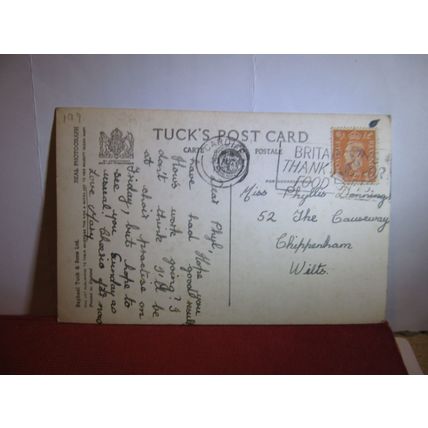 179
TUCK'S POST CARD
CARTE POSTALE
CARDIFF
BRITA
THANK
FOOD
REAL PHOTOGRAPH
Raphael Tuck & Sons Ltd.
Dear Phyl,
Hope you
have had good
How's work going? I
don't think I'll be
at choir practise on
Friday, but hope to
see you Sunday as
usual. Cheerio for now
Love
Miss Phyllis
52 The Causeway
Chippenham
Wilts.